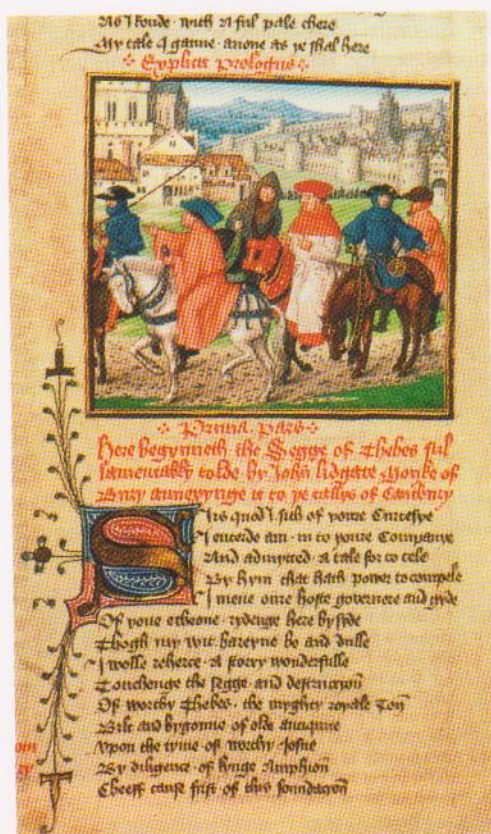 As I koude with a ful pale chere
My tale I ganne anone as ye shal here
Explicit Prologus
Prima Pars
Here begynneth the Segge of Thebes ful
lamentably tolde by John lidgate Monke of
Bury annexynge it to ye tallys of Cantbury
Sirs quod I sith of youre Curtesye
I entrede am in to youre Companye
And admytted a tale for to tele
By hym that hath power to compele
I mene oure hoste governere and gyde
Of youe echeone rydenge here by syde
Thogh my wit bareyne be and dulle
I wolle reherce a story wonderfulle
Touchenge the segge and destruccyon
Of worthy Thebes the myghty royale Ton
Bilt and bygonne of olde antiquite
Vpon the tyme of worthy Josue
By diligence of kynge Amphion
Cheeff cause first of this foundacyon